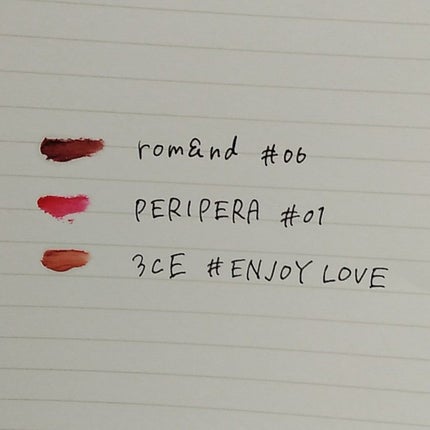 rom&nd #06
PERIPERA #01
3CE #ENJOY LOVE